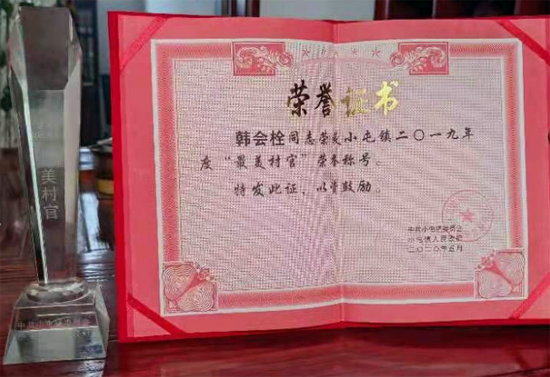 美村官
荣誉证书
韩会栓同志荣获小屯镇二〇一九年
度“最美村官”荣誉称号。
特发此证，以资鼓励。
中共小屯镇委员会
小屯镇人民政府
二〇二〇年五月